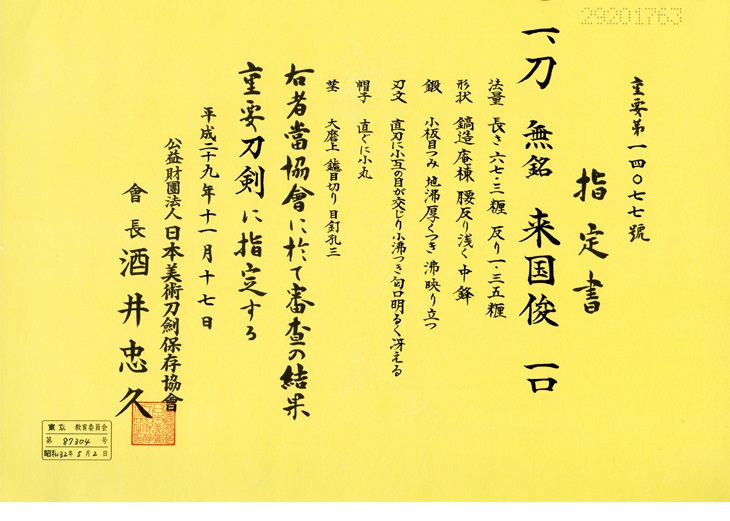 29201763
重要第一四〇七七號
指定書
一、刀 無銘 来国俊 一口
法量 長さ 六七・三糎 反り 一・三五糎
形状 鎬造 庵棟 腰反り浅く 中鋒
鍛 小板目つみ 地沸厚くつき 沸映り立つ
刃文 直刃に小互の目が交じり 小沸つき 匂口明るく冴える
帽子 直ぐに小丸
茎 大磨上 鑢目切り 目釘孔三
右者當協會に於て審査の結果
重要刀剣に指定する
平成二十九年十一月十七日
公益財團法人日本美術刀劍保存協會
會長 酒井忠久
東京 教育委員会
第 87304 号
昭和32年5月2日